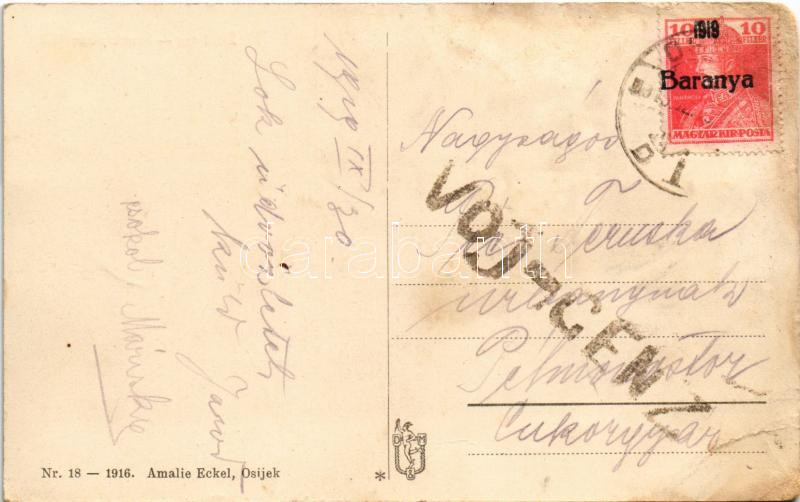 1919 IX/30.
Sok üdvözletet
küld
csokol, Mariska
Nagyságos
Teruska
urleánynak
Pélmonostor
Cukorgyár
VOJ-CENZ
1919
10 10
Baranya
MAGYAR KIR. POSTA
Nr. 18 — 1916. Amalie Eckel, Osijek
D M
darabanth.com